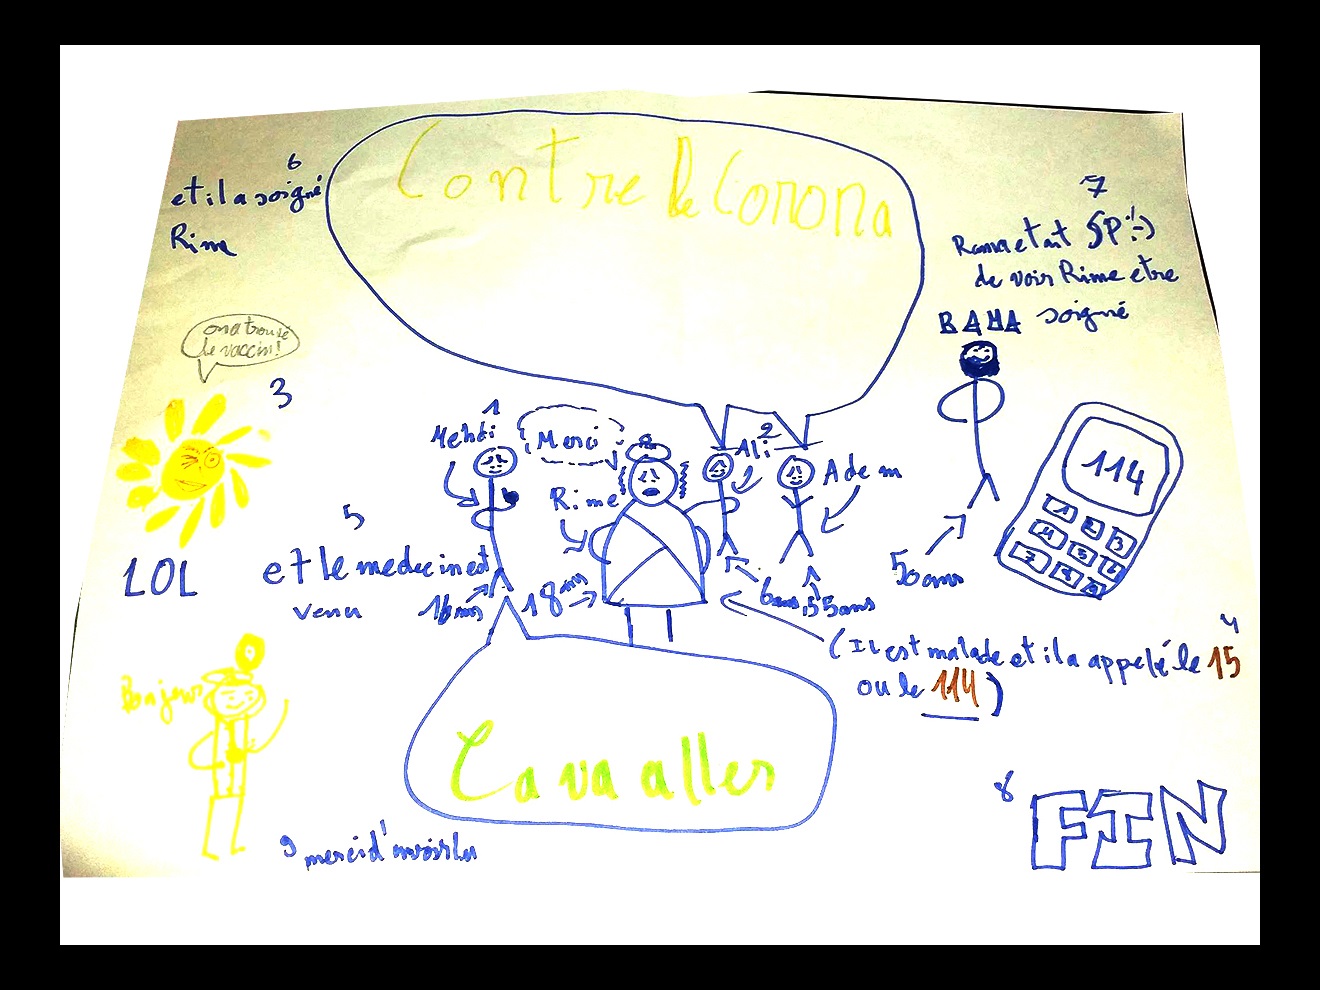 Contre le Corona
6
et il a soigné
Rime
7
Rama etait
de voir Rime etre
soigné
BAMA
on a trouvé
le vaccin!
3
LOL
1
Mehdi
Merci
Rime
2
Ali
Adem
114
1 2 3
5 6
7
50 ans
5
et le medecin est
venu
16 ans
18 ans
6 ans
55 ans
4
(Il est malade et il a appelé le 15
ou le 114)
Bonjour
Ca va aller
8
FIN
9 merci d'avoir lu